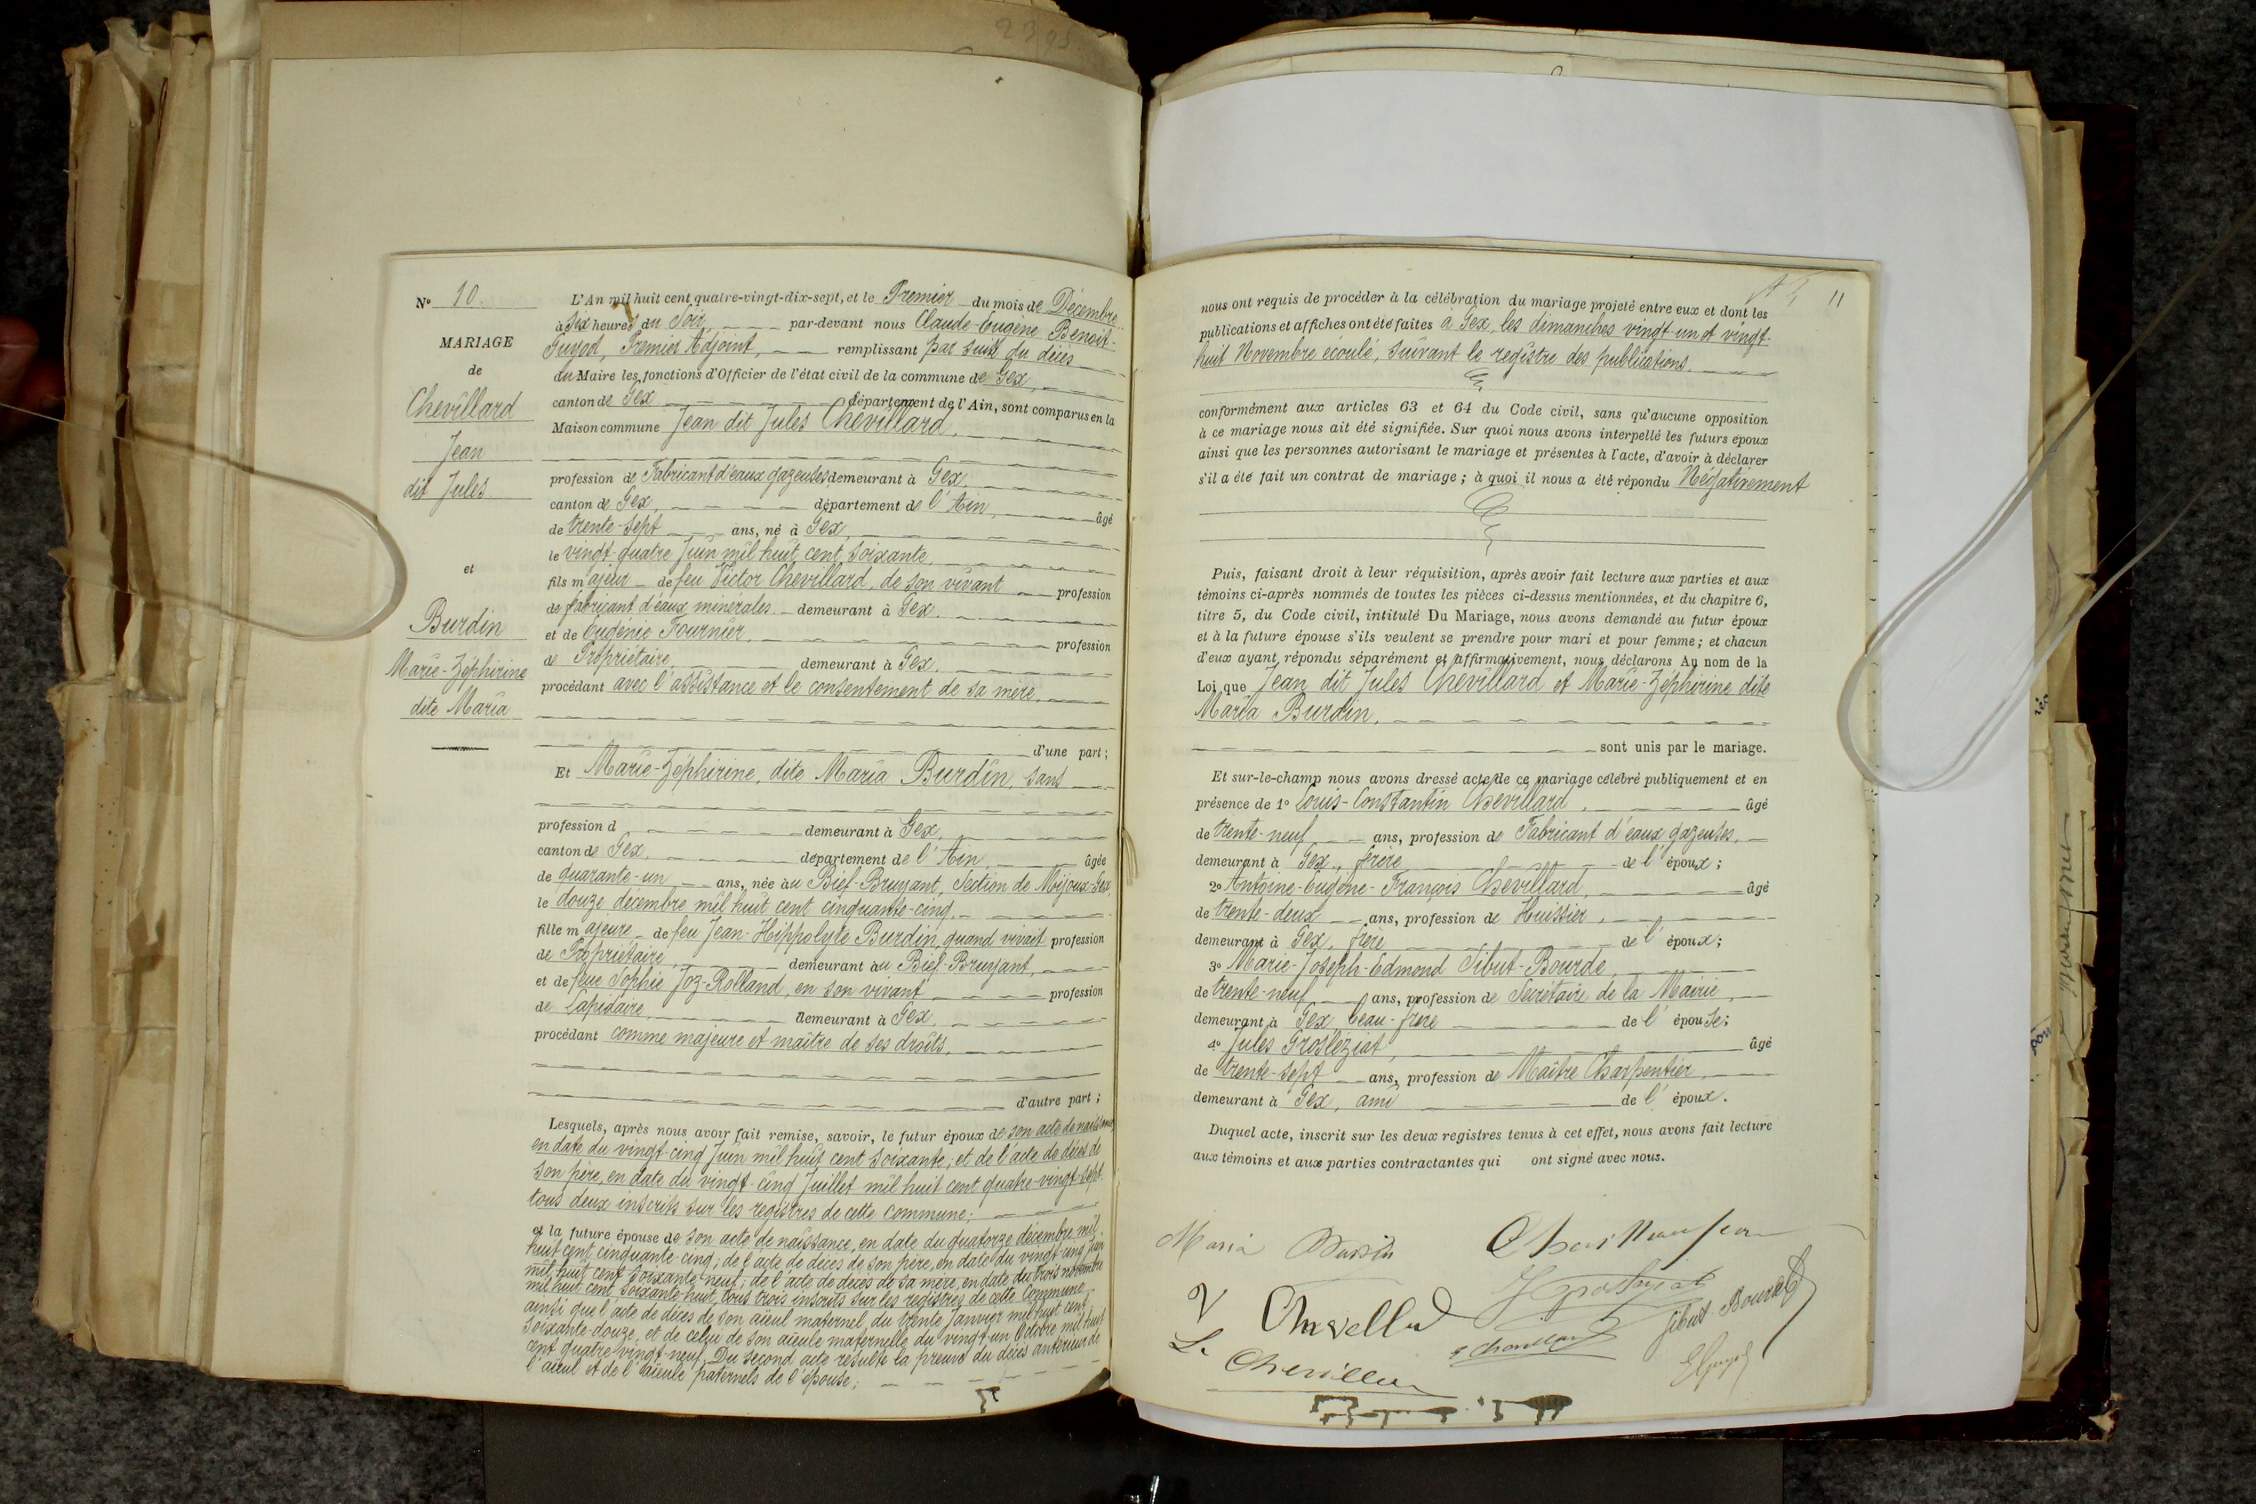 N° 10.
MARIAGE
de
Chevillard
Jean
dit Jules
et
Burdin
Marie-Zéphirine
dite Maria
L'An mil huit cent quatre-vingt-dix-sept, et le Premier du mois de Décembre
à Six heures du Soir, par-devant nous Claude-Eugène Benoit-
Guyod, Premier Adjoint, remplissant par suite du décès
du Maire les fonctions d'Officier de l'état civil de la commune de Gex,
canton de Gex département de l'Ain, sont comparus en la
Maison commune Jean dit Jules Chevillard,
profession de Fabricant d'eaux gazeuses demeurant à Gex,
canton de Gex, département de l'Ain, âgé
de trente-sept ans, né à Gex,
le vingt-quatre Juin mil huit cent soixante,
fils majeur de feu Victor Chevillard, de son vivant profession
de fabricant d'eaux minérales demeurant à Gex,
et de Eugénie Fournier, profession
de Propriétaire, demeurant à Gex,
procédant avec l'assistance et le consentement de sa mère,
d'une part ;
Et Marie-Zéphirine, dite Maria Burdin, sans
profession d demeurant à Gex,
canton de Gex, département de l'Ain âgée
de quarante-un ans, née au Bief-Bruyant, Section de Mijoux-Gex,
le douze décembre mil huit cent cinquante-cinq,
fille majeure de feu Jean-Hippolyte Burdin, quand vivait profession
de Propriétaire, demeurant au Bief-Bruyant,
et de feue Sophie Joz-Rolland, en son vivant profession
de Lapidaire, demeurant à Gex,
procédant comme majeure et maître de ses droits,
d'autre part ;
Lesquels, après nous avoir fait remise, savoir, le futur époux de son acte de naissance
en date du vingt-cinq Juin mil huit cent soixante; et de l'acte de décès de
son père, en date du vingt-cinq Juillet mil huit cent quatre-vingt-sept
tous deux inscrits sur les registres de cette commune;
et la future épouse de son acte de naissance, en date du quatorze décembre mil
huit cent cinquante-cinq; de l'acte de décès de son père, en date du vingt-cinq Juin
mil huit cent soixante-neuf; de l'acte de décès de sa mère, en date du trois novembre
mil huit cent soixante-huit, tous trois inscrits sur les registres de cette Commune,
ainsi que l'acte de décès de son aïeul maternel du trente Janvier mil huit cent
soixante-douze, et de celui de son aïeule maternelle du vingt-un Octobre mil huit
cent quatre-vingt-neuf. Du second acte résulte la preuve du décès antérieur de
l'aïeul et de l'aïeule paternels de l'épouse;
11
nous ont requis de procéder à la célébration du mariage projeté entre eux et dont les
publications et affiches ont été faites à Gex, les dimanches vingt-un et vingt-
huit Novembre écoulé, suivant le registre des publications.
conformément aux articles 63 et 64 du Code civil, sans qu'aucune opposition
à ce mariage nous ait été signifiée. Sur quoi nous avons interpellé les futurs époux
ainsi que les personnes autorisant le mariage et présentes à l'acte, d'avoir à déclarer
s'il a été fait un contrat de mariage ; à quoi il nous a été répondu Négativement
Puis, faisant droit à leur réquisition, après avoir fait lecture aux parties et aux
témoins ci-après nommés de toutes les pièces ci-dessus mentionnées, et du chapitre 6,
titre 5, du Code civil, intitulé Du Mariage, nous avons demandé au futur époux
et à la future épouse s'ils veulent se prendre pour mari et pour femme ; et chacun
d'eux ayant répondu séparément et affirmativement, nous déclarons Au nom de la
Loi que Jean dit Jules Chevillard et Marie-Zéphirine dite
Maria Burdin,
sont unis par le mariage.
Et sur-le-champ nous avons dressé acte de ce mariage célébré publiquement et en
présence de 1° Louis-Constantin Chevillard, âgé
de trente-neuf ans, profession de Fabricant d'eaux gazeuses,
demeurant à Gex, frère de l'époux ;
2° Antoine-Eugène-François Chevillard, âgé
de trente-deux ans, profession de Huissier,
demeurant à Gex, frère de l'époux ;
3° Marie-Joseph-Edmond Sibut-Bourde,
de trente-neuf ans, profession de Secrétaire de la Mairie,
demeurant à Gex beau-frère de l'épouse;
4° Jules Grosléziat, âgé
de trente-sept ans, profession de Maître Charpentier,
demeurant à Gex, ami de l'époux.
Duquel acte, inscrit sur les deux registres tenus à cet effet, nous avons fait lecture
aux témoins et aux parties contractantes qui ont signé avec nous.
Maria Burdin
Sibut Bourde